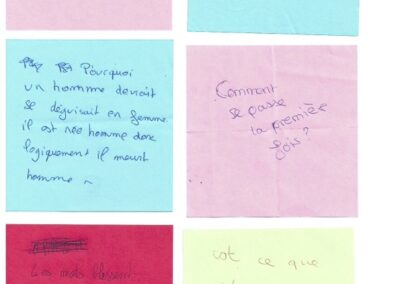 Pourquoi
un homme devrait
se déguisait en femme
il est née homme donc
logiquement il meurt
homme
Comment
se passe
la première
fois?
Les mots blessent
ce que